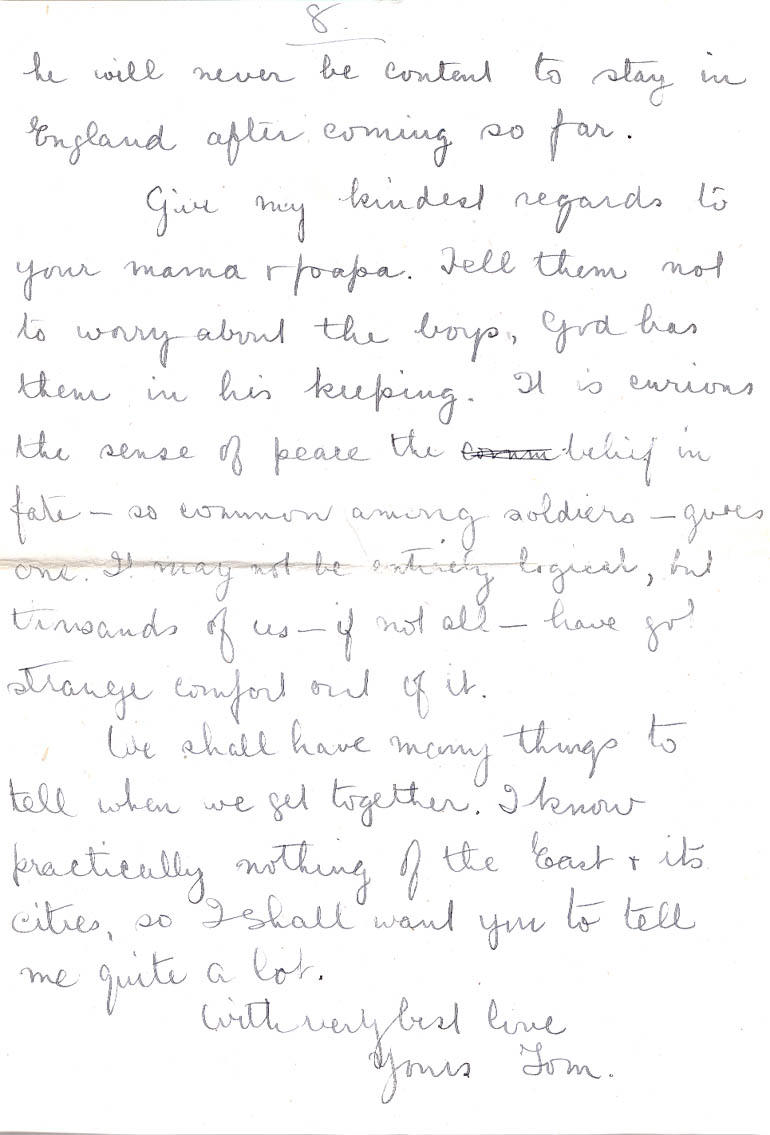 8.
he will never be content to stay in
England after coming so far.
Give my kindest regards to
your mama & papa. Tell them not
to worry about the boys, God has
them in his keeping. It is curious
the sense of peace the comm belief in
fate – so common among soldiers – gives
one. It may not be entirely logical, but
tousands of us – if not all – have got
strange comfort out of it.
We shall have many things to
tell when we get together. I know
practically nothing of the East & its
cities, so I shall want you to tell
me quite a lot.
With very best love
Yours Tom.